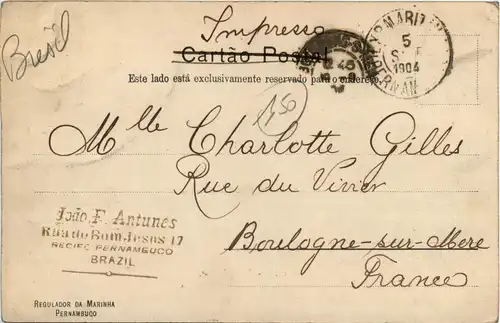 Bresil
Impresso
Cartão Postal
Este lado está exclusivamente reservado para o endereço.
MARIT
5
1904
PERNAM
45
150
Mlle Charlotte Gilles
Rue du Vivier
Boulogne-sur-Mere
France
João F. Antunes
Rua do Bom Jesus 17
RECIFE PERNAMBUCO
BRAZIL
REGULADOR DA MARINHA
PERNAMBUCO